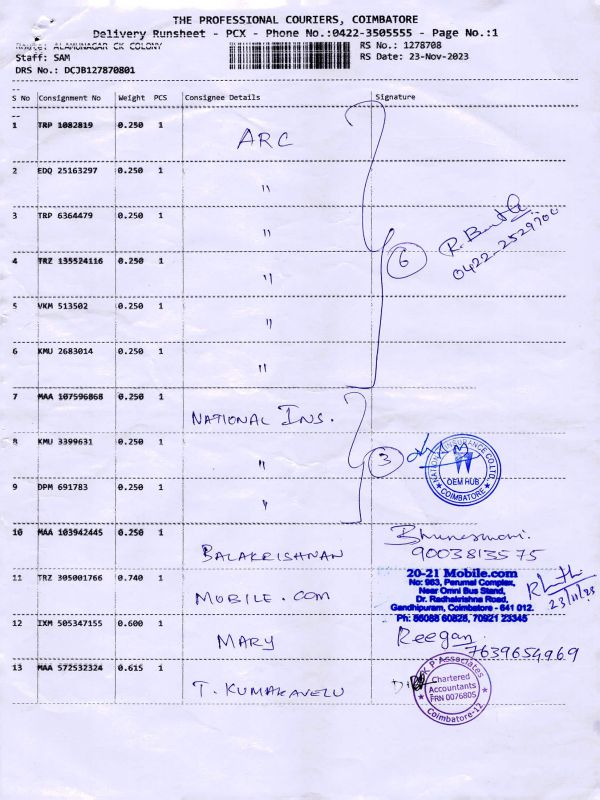 THE PROFESSIONAL COURIERS, COIMBATORE
Delivery Runsheet - PCX - Phone No.:0422-3505555 - Page No.:1
Route: ALAMUNAGAR CK COLONY
RS No.: 1278708
Staff: SAM
RS Date: 23-Nov-2023
DRS No.: DCJB127870801
S No Consignment No Weight PCS Consignee Details Signature
1 TRP 1082819 0.250 1 ARC
2 EDQ 25163297 0.250 1 "
3 TRP 6364479 0.250 1 "
4 TRZ 135524116 0.250 1 "
5 VKM 513502 0.250 1 "
6 KMU 2683014 0.250 1 "
6
0422-2529700
7 MAA 107596868 0.250 1 NATIONAL INS.
8 KMU 3399631 0.250 1 "
9 DPM 691783 0.250 1 "
3
NATIONAL INSURANCE CO.LTD.
OEM HUB
COIMBATORE
10 MAA 103942445 0.250 1 BALAKRISHNAN
Bhuneswari.
9003813575
11 TRZ 305001766 0.740 1 MOBILE.COM
20-21 Mobile.com
No: 983, Perumal Complex,
Near Omni Bus Stand,
Dr. Radhakrishna Road,
Gandhipuram, Coimbatore - 641 012.
Ph: 86088 60828, 70921 23345
23/11/23
12 IXM 505347155 0.600 1 MARY
Reegan
7639654969
13 MAA 572532324 0.615 1 T. KUMARAVELU
K P Associates
Chartered
Accountants
FRN 007680S
Coimbatore-12